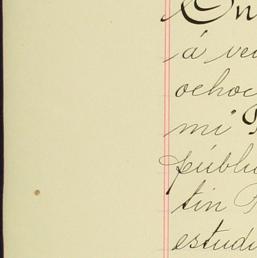 En
á ve
ochoc
mi P
públi
tin P
estudi